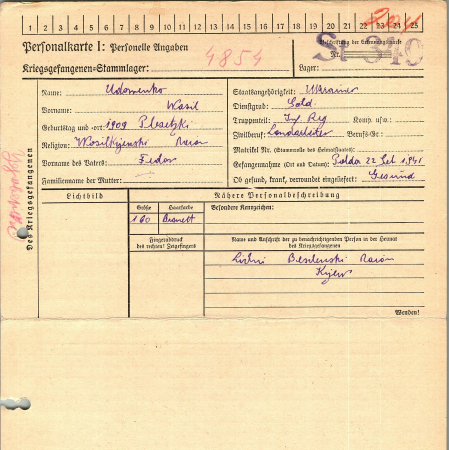 1 2 3 4 5 6 7 8 9 10 11 12 13 14 15 16 17 18 19 20 21 22 23 24 25
Personalkarte I: Personelle Angaben
4854
Beschriftung der Erkennungsmarke
Nr.
Kriegsgefangenen-Stammlager:
Lager:
St 340
Des Kriegsgefangenen
Name: Udowenko
Vorname: Wasil
Geburtstag und -ort: 1909 Plesetzki
Religion: Wosilkijenski Raion
Vorname des Vaters: Fedor
Familienname der Mutter:
Staatsangehörigkeit: Ukrainer
Dienstgrad: Sold.
Truppenteil: Inf. Reg Komp. usw.:
Zivilberuf: Landarbeiter Berufs-Gr.:
Matrikel Nr. (Stammrolle des Heimatstaates):
Gefangennahme (Ort und Datum): 22 1941
Ob gesund, krank, verwundet eingeliefert: Gesund
Lichtbild
Nähere Personalbeschreibung
Größe
Haarfarbe
Besondere Kennzeichen:
160
Brünett
Fingerabdruck
des rechten! Zeigefingers
Name und Anschrift der zu benachrichtigenden Person in der Heimat
des Kriegsgefangenen
Raion
Kijew
Wenden!